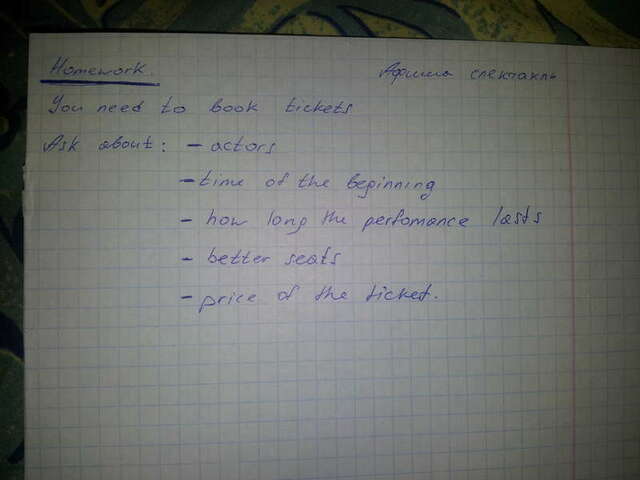 Homework. Афиша спектакль
You need to book tickets
Ask about: - actors
- time of the beginning
- how long the perfomance lasts
- better seats
- price of the ticket.